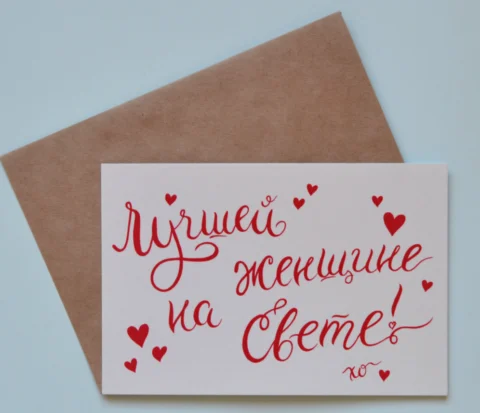 Лучшей
женщине
на
Свете!
xo